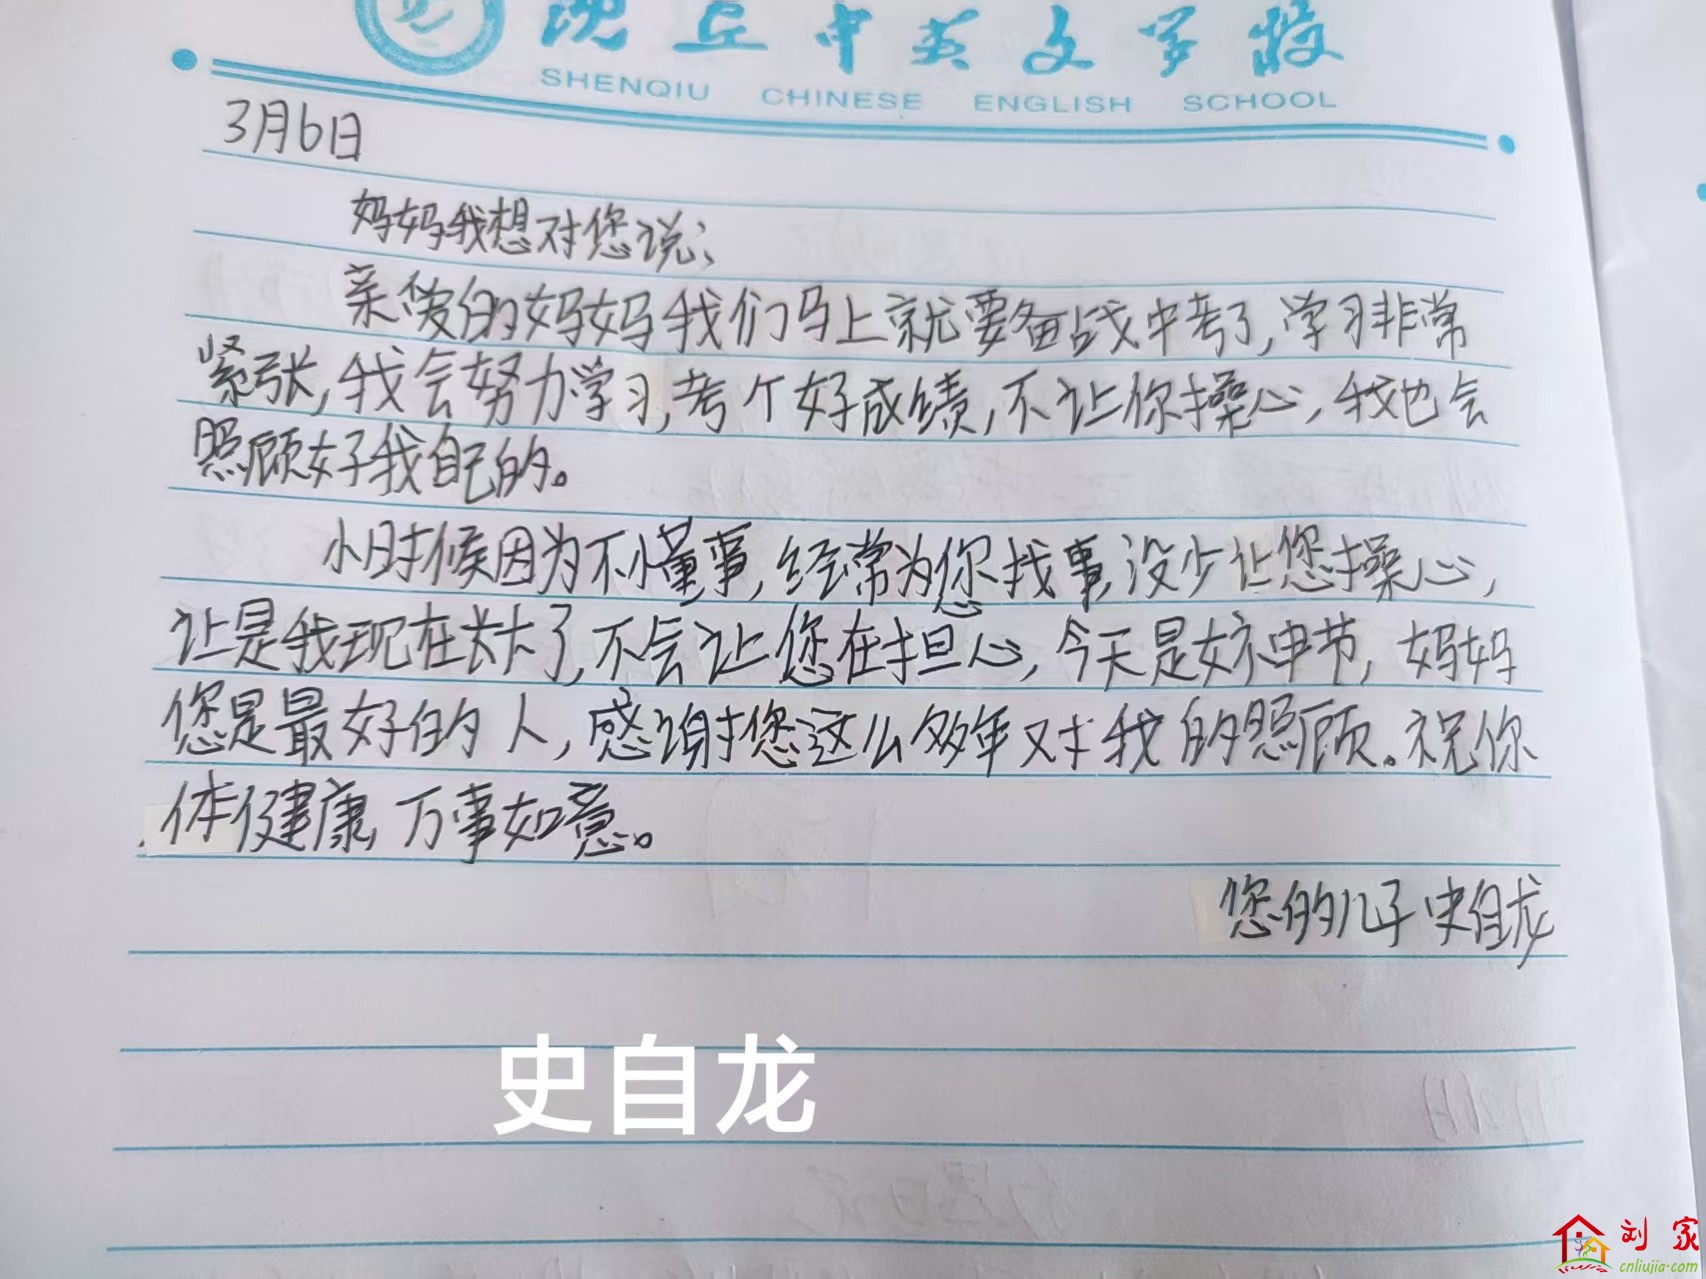 沈丘中英文学校
SHENQIU CHINESE ENGLISH SCHOOL
3月6日
妈妈我想对您说:
亲爱的妈妈我们马上就要备战中考了,学习非常
紧张,我会努力学习,考个好成绩,不让你操心,我也会
照顾好我自己的。
小时候因为不懂事,经常为您找事,没少让您操心,
让是我现在长大了,不会让您在担心,今天是女神节,妈妈
您是最好的人,感谢您这么多年对我的照顾。祝你
体健康,万事如意。
您的儿子史自龙
史自龙
刘家
cnliujia.com